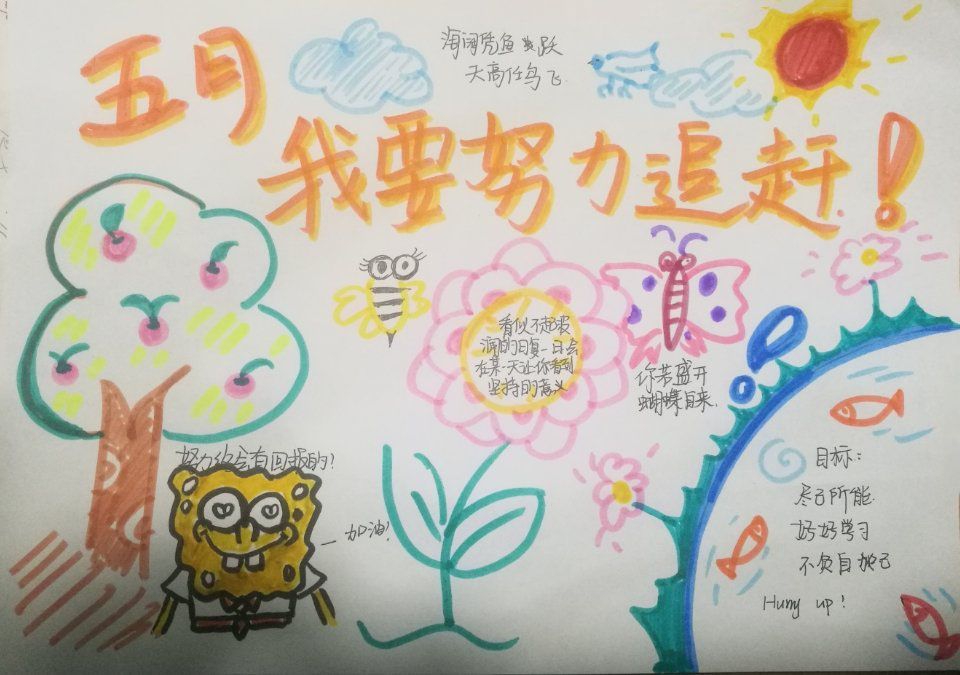 五月
海阔凭鱼跃
天高任鸟飞
我要努力追赶!
看似不起波
澜的日复一日会
在某一天让你看到
坚持的意义
你若盛开
蝴蝶自来
努力终会有回报的!
加油!
目标:
尽己所能
好好学习
不负自己
Hurry up!